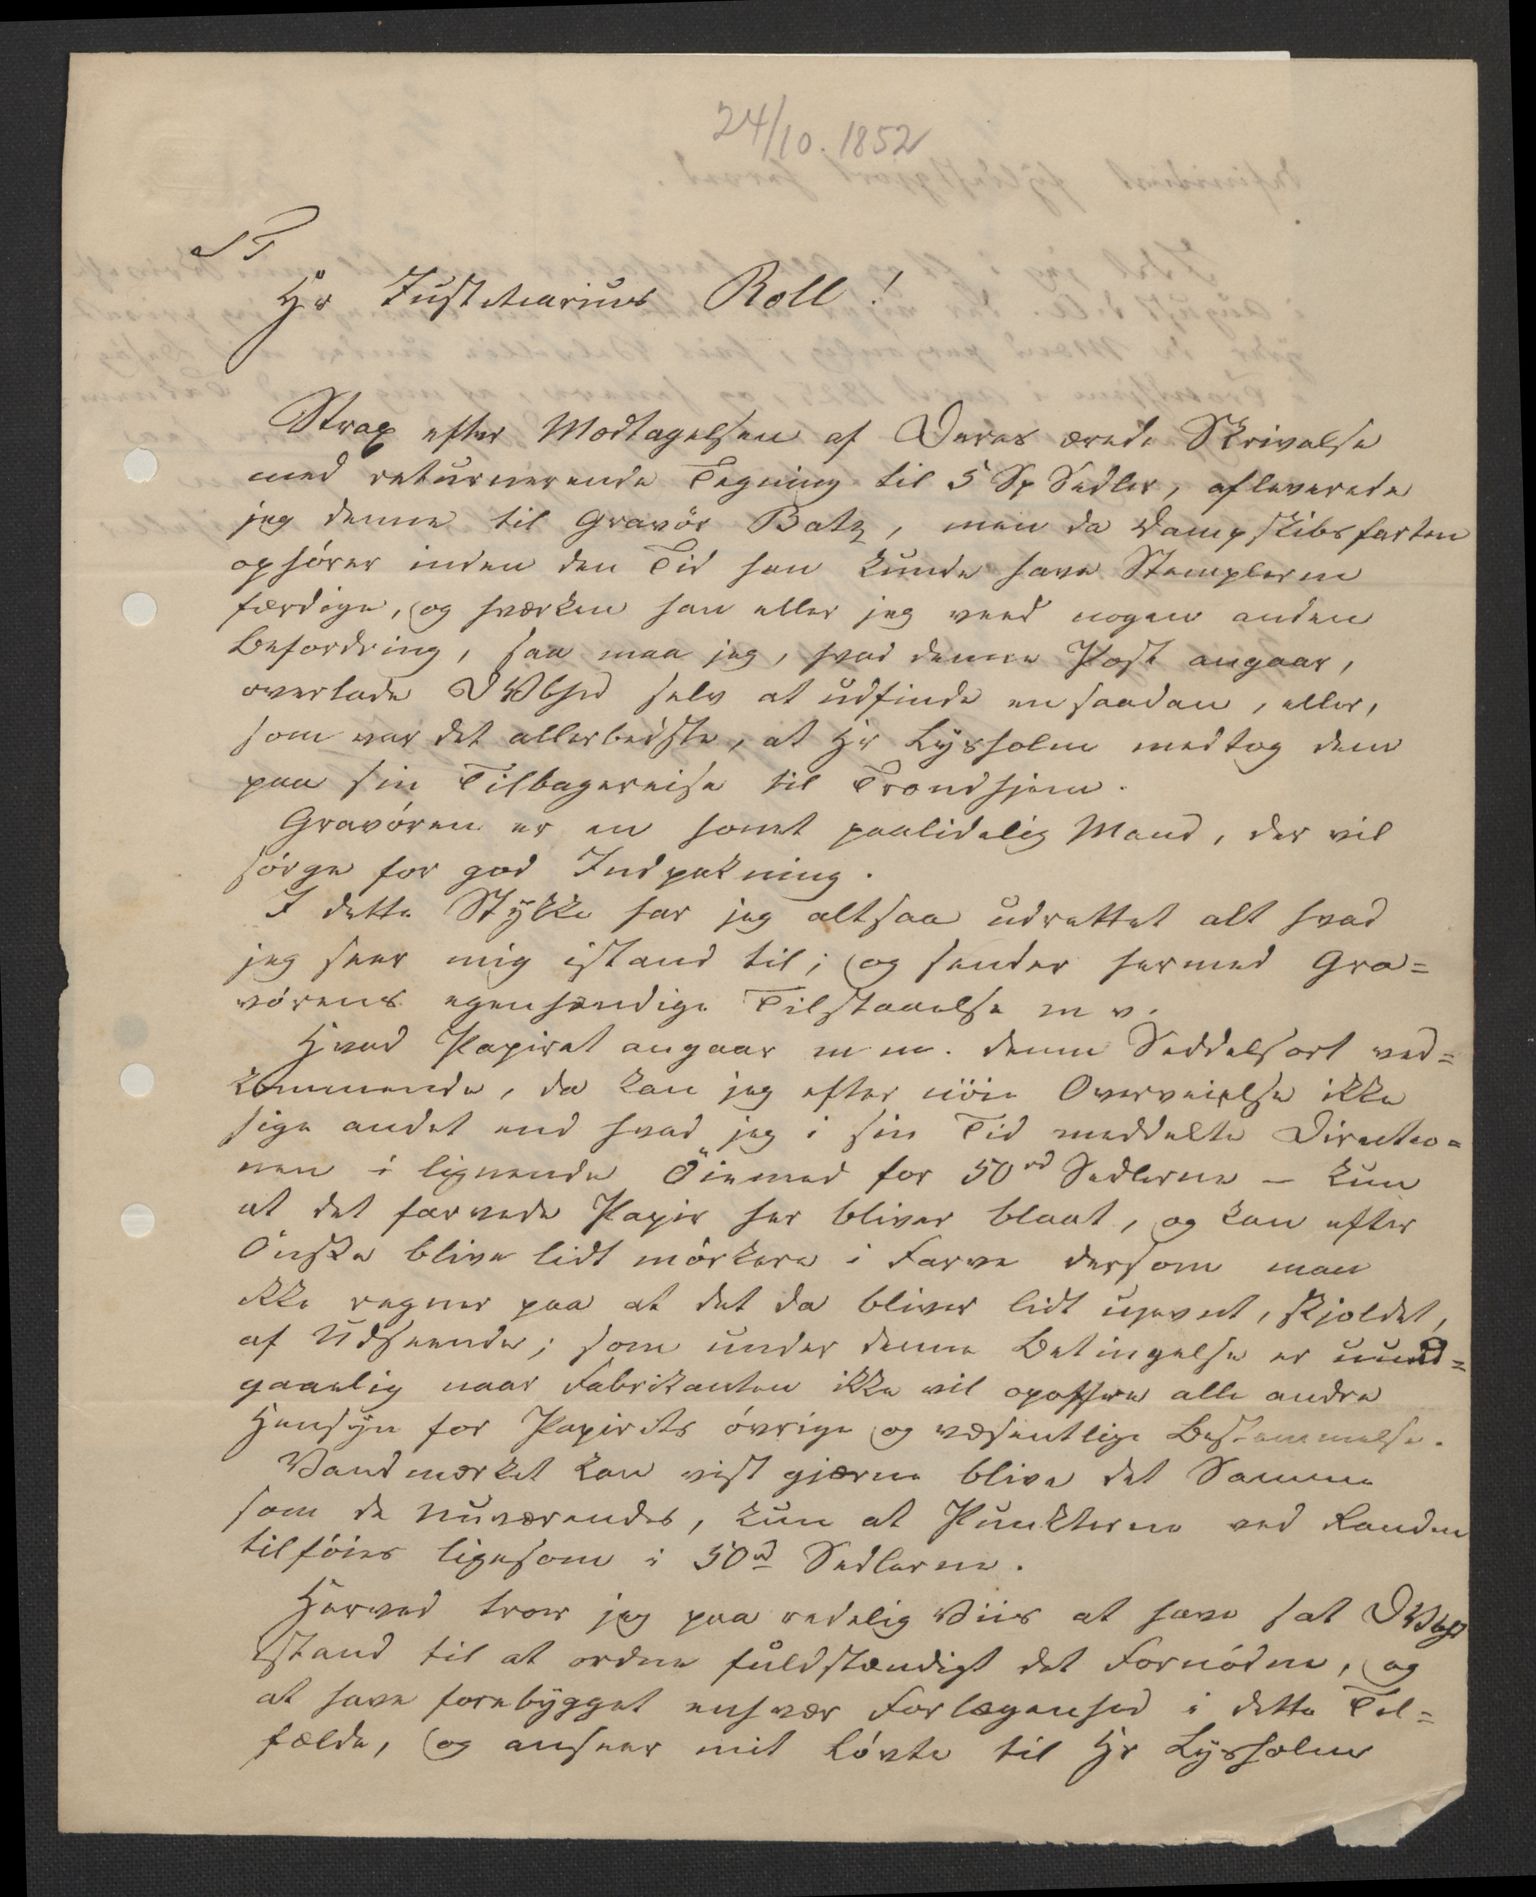 24/10. 1852
S T
Hr Justitiarius Roll!
Strax efter Modtagelsen af Deres ærede Skrivelse
med returnerende Tegning til 5 Sp Sedler, afleverede
jeg denne til Gravör Batz, men da Dampskibsfarten
ophører inden den Tid han kunde have Stemplerne
færdige, og hværken han eller jeg veed nogen anden
Befordring, saa maa jeg, hvad denne Post angaar,
overlade DVbhed selv at udfinde en saadan, eller,
som var det allerbedste, at Hr Lysholm medtog dem
paa sin Tilbagereise til Trondhjem.
Gravören er en somt paalidelig Mand, der vil
sörge for god Indpakning.
I dette Stykke har jeg altsaa udrettet alt hvad
jeg seer mig istand til; og sender hermed Gra=
vörens egenhændige Tilstaaelse m v.
Hvad Papiret angaar m m. denne Seddelsort ved=
kommende, da kan jeg efter nöie Overveielse ikke
sige andet end hvad jeg i sin Tid meddelte Directio=
nen i lignende Öiemed for 50rd Sedlerne – kun
at det farvede Papir her bliver blaat, og kan efter
Önske blive lidt mörkere i Farve dersom man
ikke regner paa at det da bliver lidt ujevnt, skjoldet,
af Udseende; som under denne Betingelse er uund=
gaaelig naar Fabrikanten ikke vil opoffre alle andre
Hensyn for Papirets övrige og væsentlige Bestemmelse.
Vandmærket kan vist gjærne blive det Samme
som de nuværendes, kun at Punkterne ved Randen
tilföies ligesom i 50rd Sedlerne.
Herved troer jeg paa redelig Viis at have sat DVbhd
istand til at ordne fuldstændigt det Fornödne, og
at have forebygget enhvær Forlægenhed i dette Til=
fælde, og anseer mit Lövte til Hr Lysholm